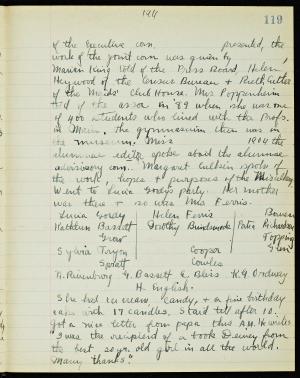 144
119
of the Executive com. presented, the
work of the joint com was given by
Marion King told of the Press Board, Helen
Heywood of the Census Bureau & Ruth Cutler
of the Maids' Club House. Miss Poppenheim
told of the assoc in '89 when she was one
of 400 students who lived with the Profs.
in Main. The gymnasium then was in
the museum. Miss 1904 the
alumnae editor spoke about the alumnae
advisory com. Margaret spoke of
the work, hopes & purposes of the Miscellany
Went to Lucia Gorday's party. Her mother
was there & so was Mrs Ferris.
Lucia Helen Ferris
Kathleen Bassett Dorothy Peter Richardson
Grow Topping
Sylvia Tryon Cooper
Spratt Cowles
G. Bassett E. Bliss. K.G. Ordway
H. English.
She had ice cream, candy, & a fine birthday
cake with 17 candles. Staid till after 10.
Got a nice letter from papa this A.M. He writes
"I was the recipient of a book Dewey from
the best 20 yr. old girl in all the world.
Many thanks".